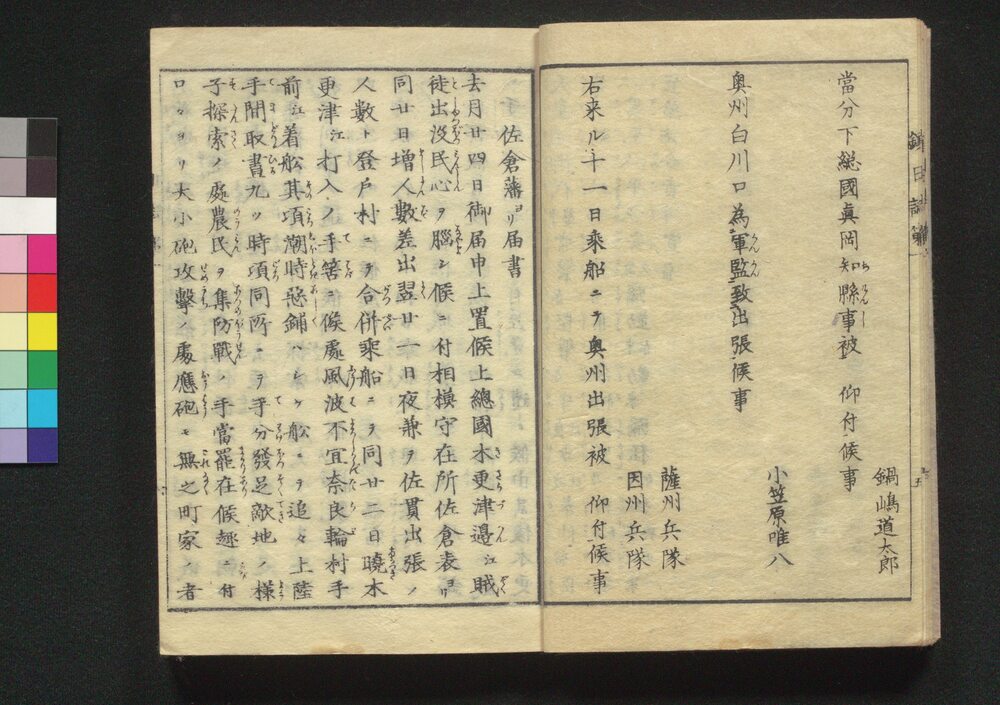 鍋嶋道太郎
當分下總國眞岡知縣事被 仰付候事
小笠原唯八
奥州白川口為軍監致出張候事
薩州兵隊
因州兵隊
右来ル十一日乗船ニテ奥州出張被 仰付候事
佐倉藩ヨリ届書
去月廿四日御届申上置候上總國木更津邉江賊
徒出没民心ヲ腦シ候ニ付相模守在所佐倉表ヨリ
同廿日増人數差出翌廿一日夜兼テ佐貫出張ノ
人數ト登戸村ニテ合併乗船ニテ同廿二日曉木
更津江打入ノ手筈ヲ候處風波不宜奈良輪村手
前江着船其項潮時惡鋪ハシケ船ニテ追々上陸
手間取晝九ツ時項同所ニテ手分發足敵地ノ様
子探索ノ處農民ヲ集防戰ノ手當罷在候趣ニ付
口々ヨリ大小砲攻擊ノ處應砲モ無之町家ノ者